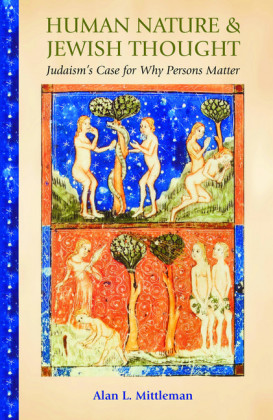 HUMAN NATURE &
JEWISH THOUGHT
Judaism's Case for Why Persons Matter
Alan L. Mittleman